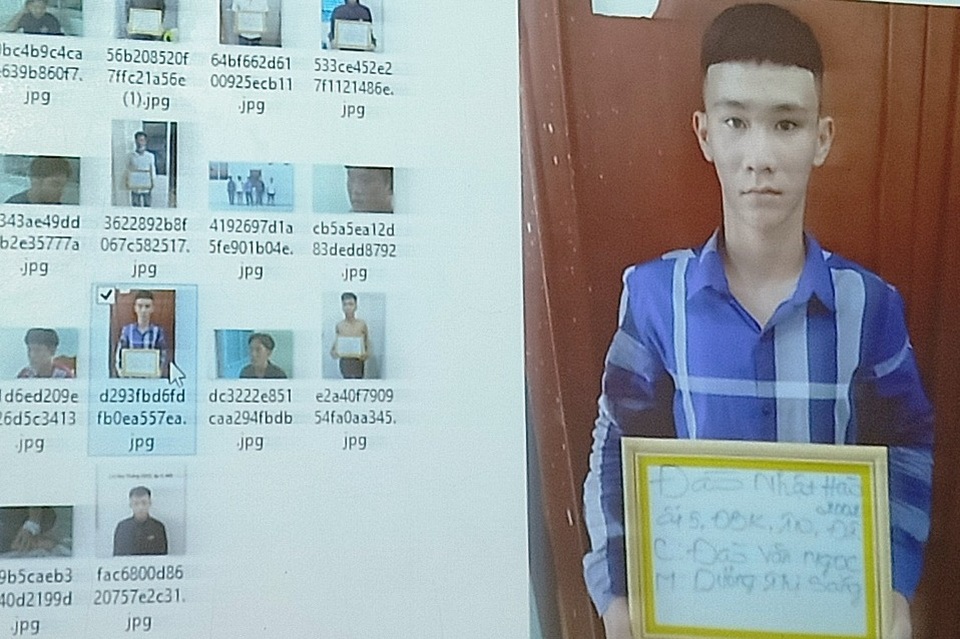 bc4b9c4ca
e639b860f7.
jpg
56b208520f
7ffc21a56e
(1).jpg
64bf662d61
00925ecb11
.jpg
533ce452e2
7f1121486e.
jpg
343ae49dd
b2e35777a
.jpg
3622892b8f
067c582517.
jpg
4192697d1a
5fe901b04e.
jpg
cb5a5ea12d
83dedd8792
.jpg
1d6ed209e
26d5c3413
.jpg
d293fbd6fd
fb0ea557ea.
jpg
dc3222e851
caa294fbdb
.jpg
e2a40f7909
54fa0aa345.
jpg
9b5caeb3
40d2199d
.jpg
fac6800d86
20757e2c31.
jpg
Đào Nhật Hào
2002
ấp 5, ĐBK,
C: Đào Văn Ngọc
M Dương Thị